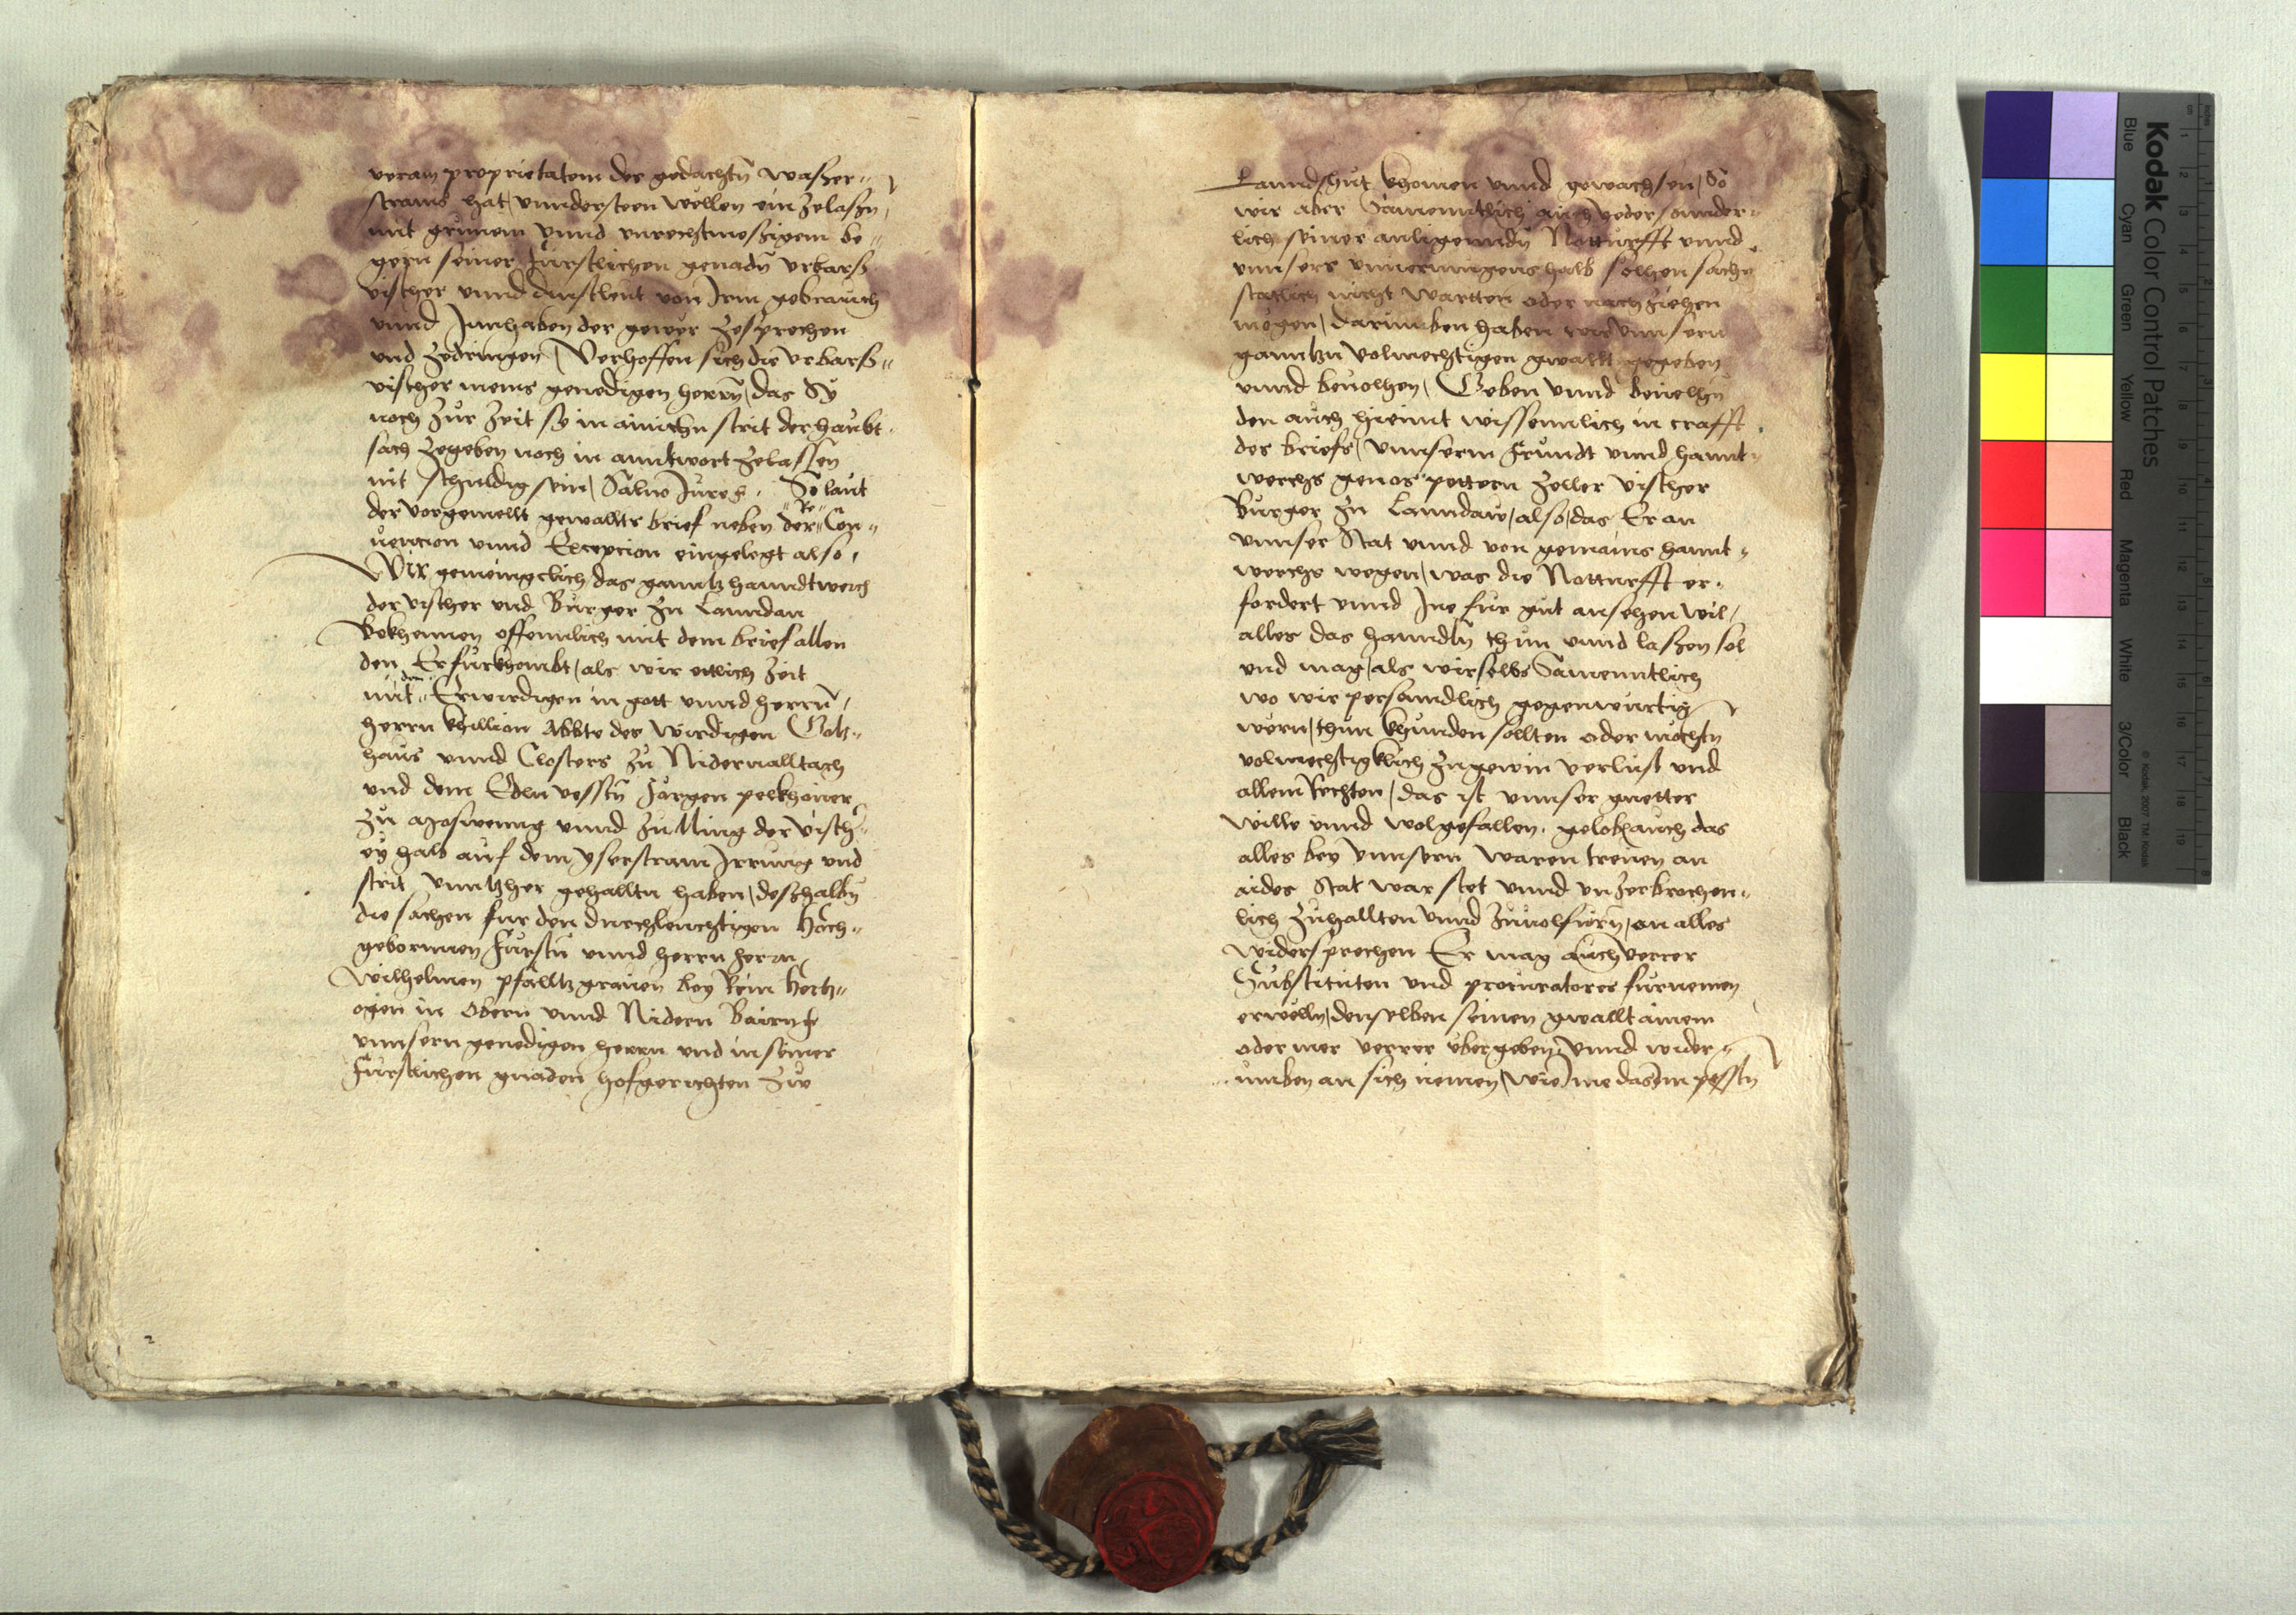 veram proprietatem der gedachtn wasser-
strams hat, unndersteen wellen ein zelassn,
mit grunem unnd unrechtmessigem be-
gern seiner furstlichen genadn urbars
vischer unnd dinstleut von Irm gebrauch
unnd Innhaben der gewer zesprechen
und zedringen, Verhoffen sich die urbars-
vischer meins genedigen herrn, das Sy
noch zur zeit sy in ainichn strit der haubt-
sach zegeben noch in anntwort zelassen
nit schuldig sein, Salvo Jure etc. So laut
der vorgemellt gewallts brief neben der Re Con-
vencion unnd Excepcion eingelegt also,
Wir gemeingclich das ganntz hanndtwerch
der vischer und Burger zu Lanndau
Bekhennen offennlich mit dem brief allen
den Er furkhombt, als wir etlich zeit
mit dem Erwirdigen in gott unnd herrn,
herrn khillian Abbte des wirdigen Gotz-
haus unnd Closters zu Nidernalltach
und dem Edln vesstn Jorgen pelkhover
zu Moswenng unnd zulling der visch-
ey halb auf dem yserstram Irrung und
strit unntzher gehalltn haben, deshalbn
die sachen fur den durchleuchtigen Hoch-
gebornnen furstn unnd herrn herrn
Wilhelmen pfalltzgraven bey Rein Hertz-
ogen in Obern unnd Nidern Bairn etc
unnsern genedigen herrn und in seiner
Furstlichen gnaden hofgerichten zu
Lanndshut khomen unnd gewachsen, So
wir aber Samenntlich auch yeder sonnder-
lich seiner anligenndn Notturfft unnd
unnsers unvermugens halb solhen sachn
statlich nicht wartten oder nachziehen
mogen, darumben haben wir unnsern
ganntzn volmechtigen gwallt gegeben
unnd bevolhen, Geben unnd bevelhn
den auch hiemit wissennlich in crafft
des briefs, unnserm frundt unnd hannt-
werchs genos pettern zeller vischer
Burger zu Lanndaw, also, das Er an
unnser Stat unnd von gemains hannt-
werchs wegen, was die Notturfft er-
fordert unnd Ine fur gut ansehen wil,
alles das hanndln thun unnd lassen sol
und mag, als wir selbs Samenntlich
wo wir personndlich gegenwurtig
wern, thun khunden sollten oder mochtn
volmechtigklich zu gewin verlust und
allem Rechten, das ist unnser guetter
wille unnd wolgefallen, geloben auch das
alles bey unnsern waren treuen an
aides Stat war stet unnd unzerbrochen-
lich zuhallten unnd zuvolfurn, on alles
widersprechen Er mag auch verrer
Substituten und procuratores furnemen
erwelln, denselben seinen gwallt ainem
oder mer verrer ubergeben, unnd wider-
umben an sich nemen, wie Ine das Im pesstn